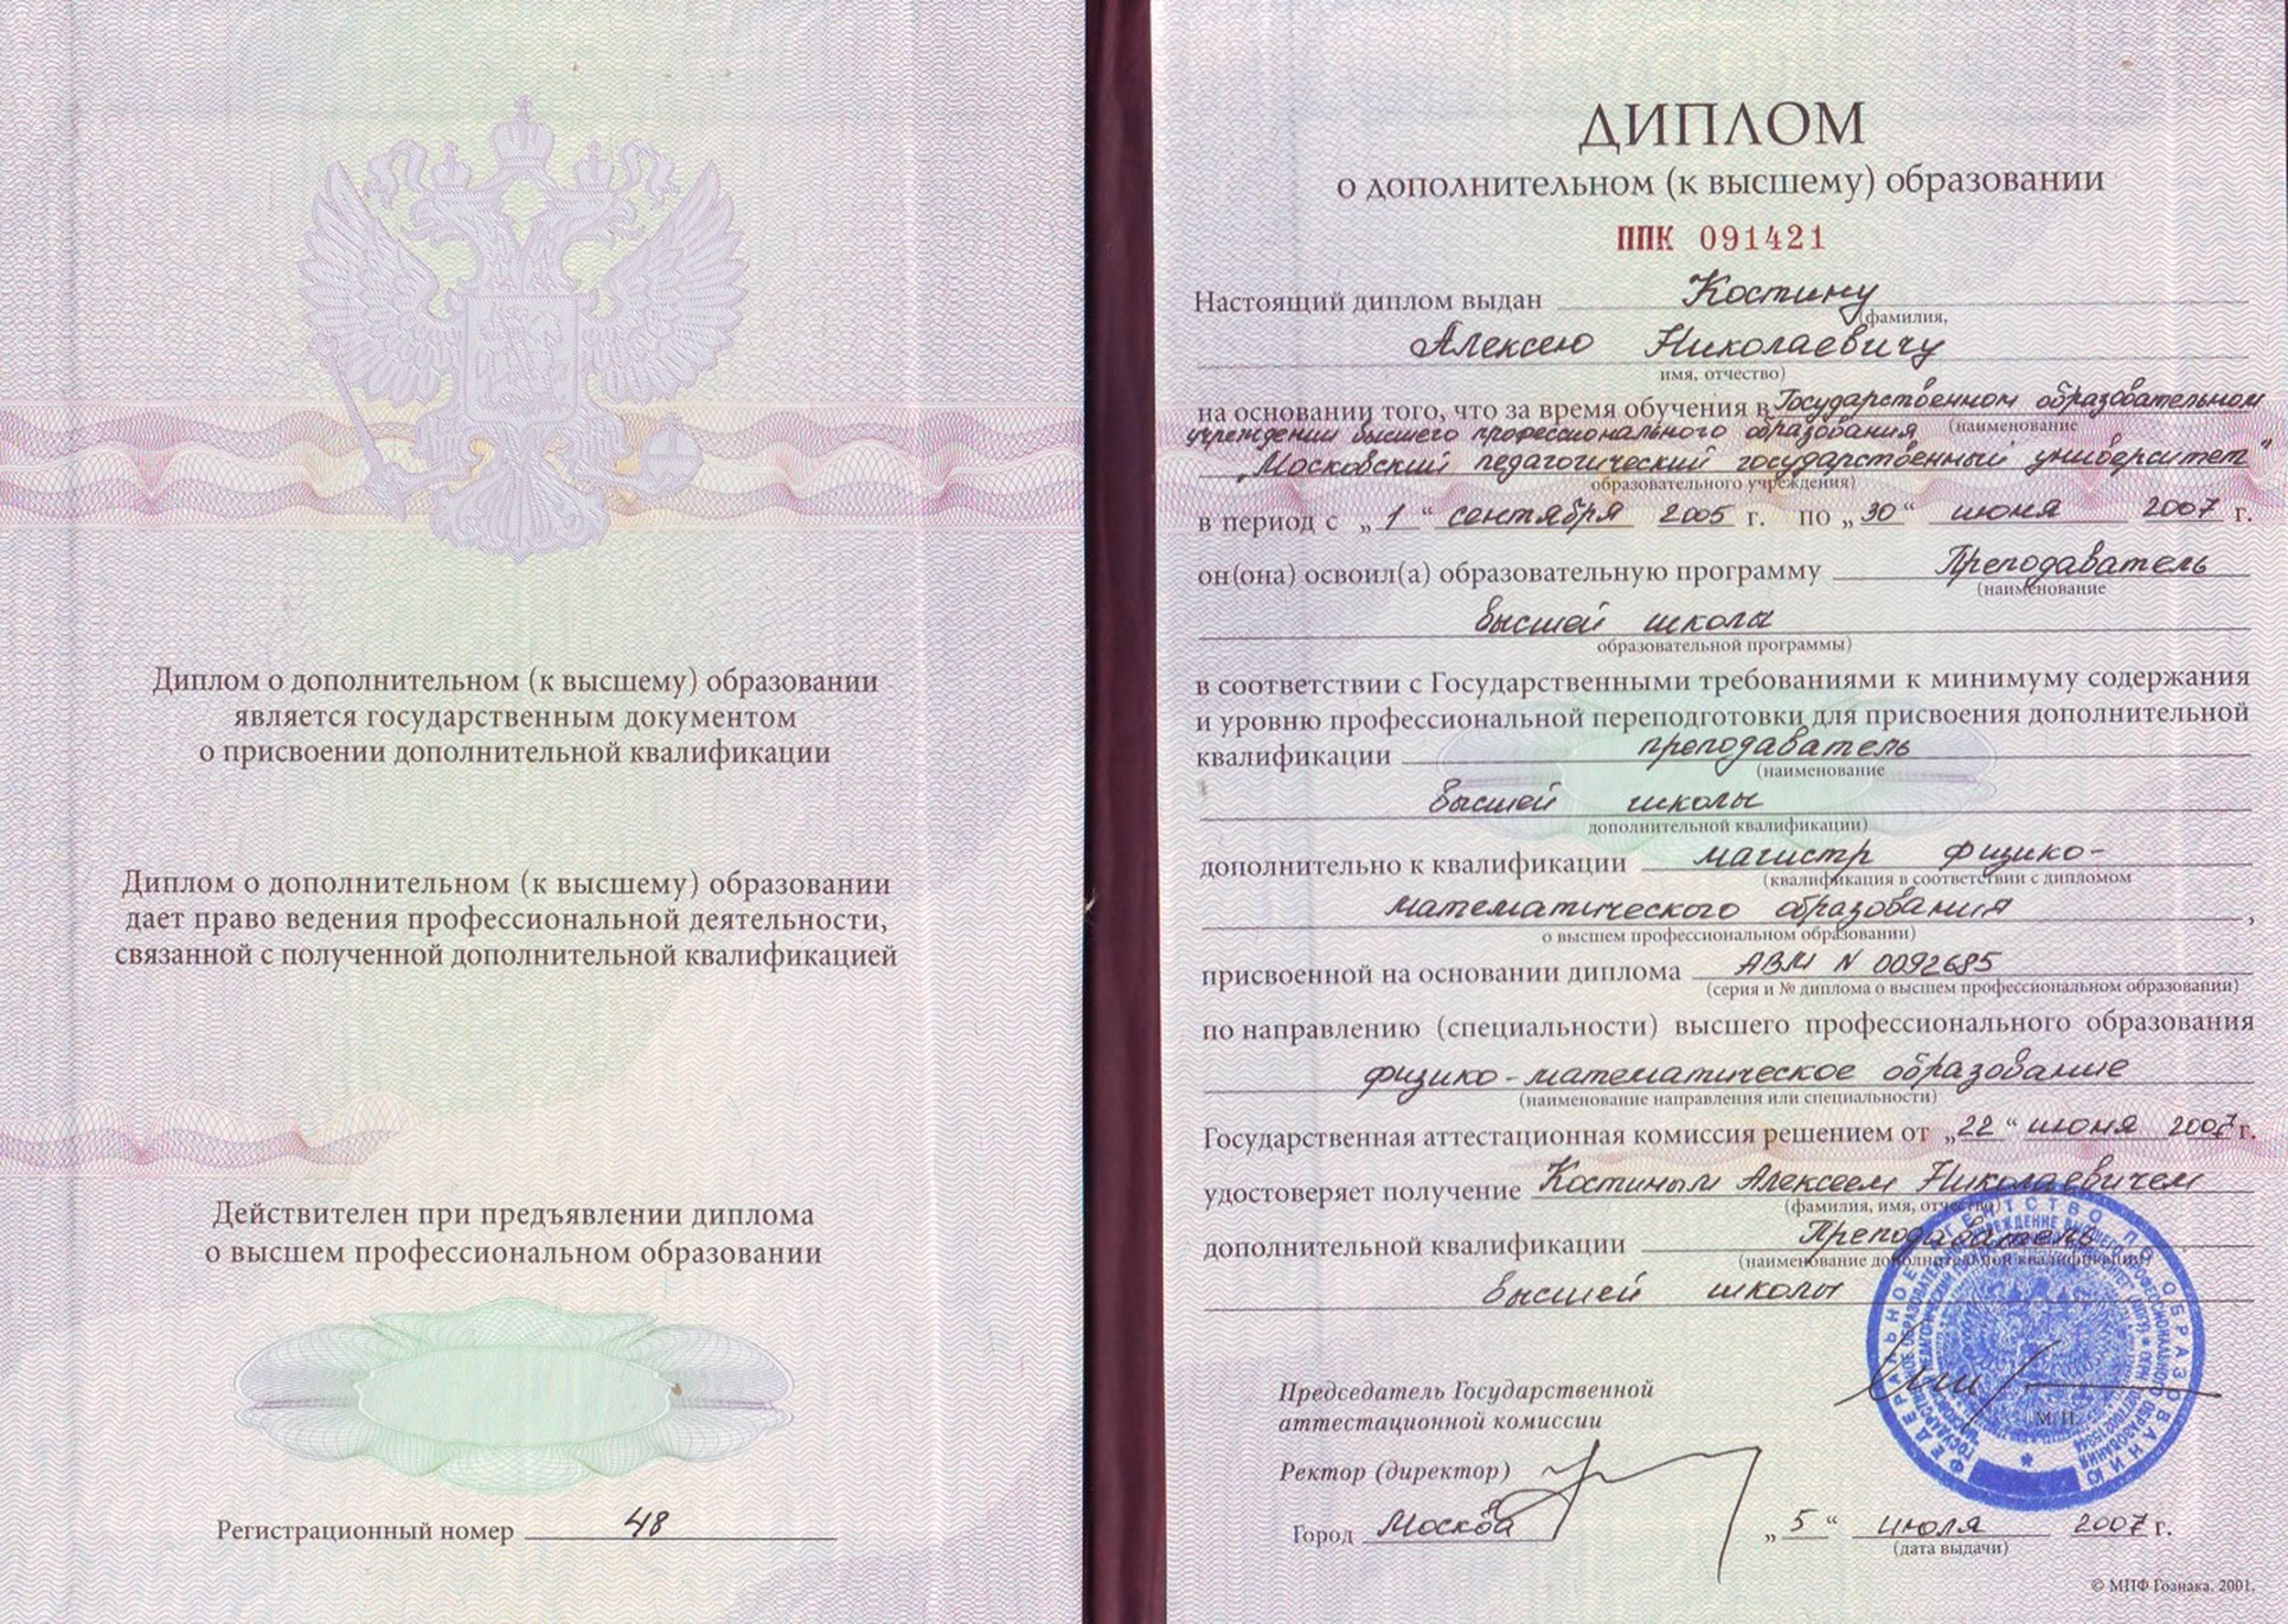 Диплом о дополнительном (к высшему) образовании
является государственным документом
о присвоении дополнительной квалификации
Диплом о дополнительном (к высшему) образовании
дает право ведения профессиональной деятельности,
связанной с полученной дополнительной квалификацией
Действителен при предъявлении диплома
о высшем профессиональном образовании
Регистрационный номер 48
ДИПЛОМ
о дополнительном (к высшему) образовании
ППК 091421
Настоящий диплом выдан Костину
(фамилия,
Алексею Николаевичу
имя, отчество)
на основании того, что за время обучения в Государственном образовательном
учреждении высшего профессионального образования (наименование
„Московский педагогический государственный университет"
образовательного учреждения)
в период с „1“ сентября 2005 г. по „30“ июня 2007 г.
он(она) освоил(а) образовательную программу Преподаватель
(наименование
высшей школы
образовательной программы)
в соответствии с Государственными требованиями к минимуму содержания
и уровню профессиональной переподготовки для присвоения дополнительной
квалификации преподаватель
(наименование
высшей школы
дополнительной квалификации)
дополнительно к квалификации магистр физико-
(квалификация в соответствии с дипломом
математического образования,
о высшем профессиональном образовании)
присвоенной на основании диплома АВМ N 0092685
(серия и № диплома о высшем профессиональном образовании)
по направлению (специальности) высшего профессионального образования
физико-математическое образование
(наименование направления или специальности)
Государственная аттестационная комиссия решением от „22“ июня 2007 г.
удостоверяет получение Костиным Алексеем Николаевичем
(фамилия, имя, отчество)
дополнительной квалификации Преподаватель
(наименование дополнительной квалификации)
высшей школы
ФЕДЕРАЛЬНОЕ АГЕНТСТВО ПО ОБРАЗОВАНИЮ
Председатель Государственной
аттестационной комиссии
М.П.
Ректор (директор)
Город Москва „5“ июля 2007 г.
(дата выдачи)
© МПФ Гознака, 2001.